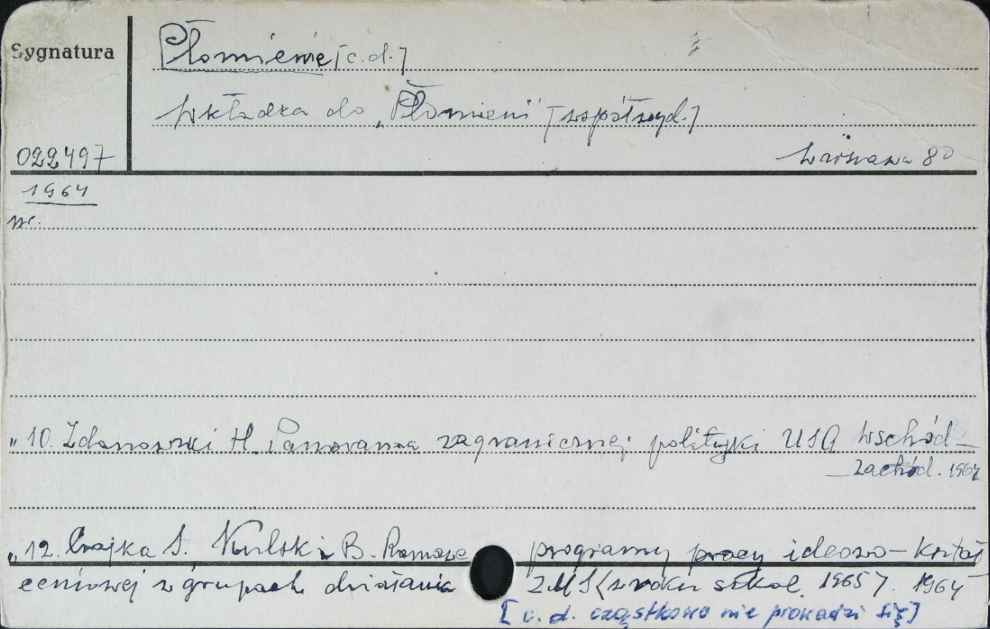 Sygnatura
Płomienie [c.d.]
Wkładka do "Płomieni" [współwyd.]
022497
Warszawa 8°
1964
nr.
" 10. Zdanowski H. Panorama zagranicznej polityki USA Wschód-
-Zachód. 1964
" 12. Czajka S. Kulski B. Ramowe programy pracy ideowo-kształ
ceniowej w grupach działania ZMS (w roku szkol. 1965). 1964
[c.d. cząstkowo nie prowadzi się]